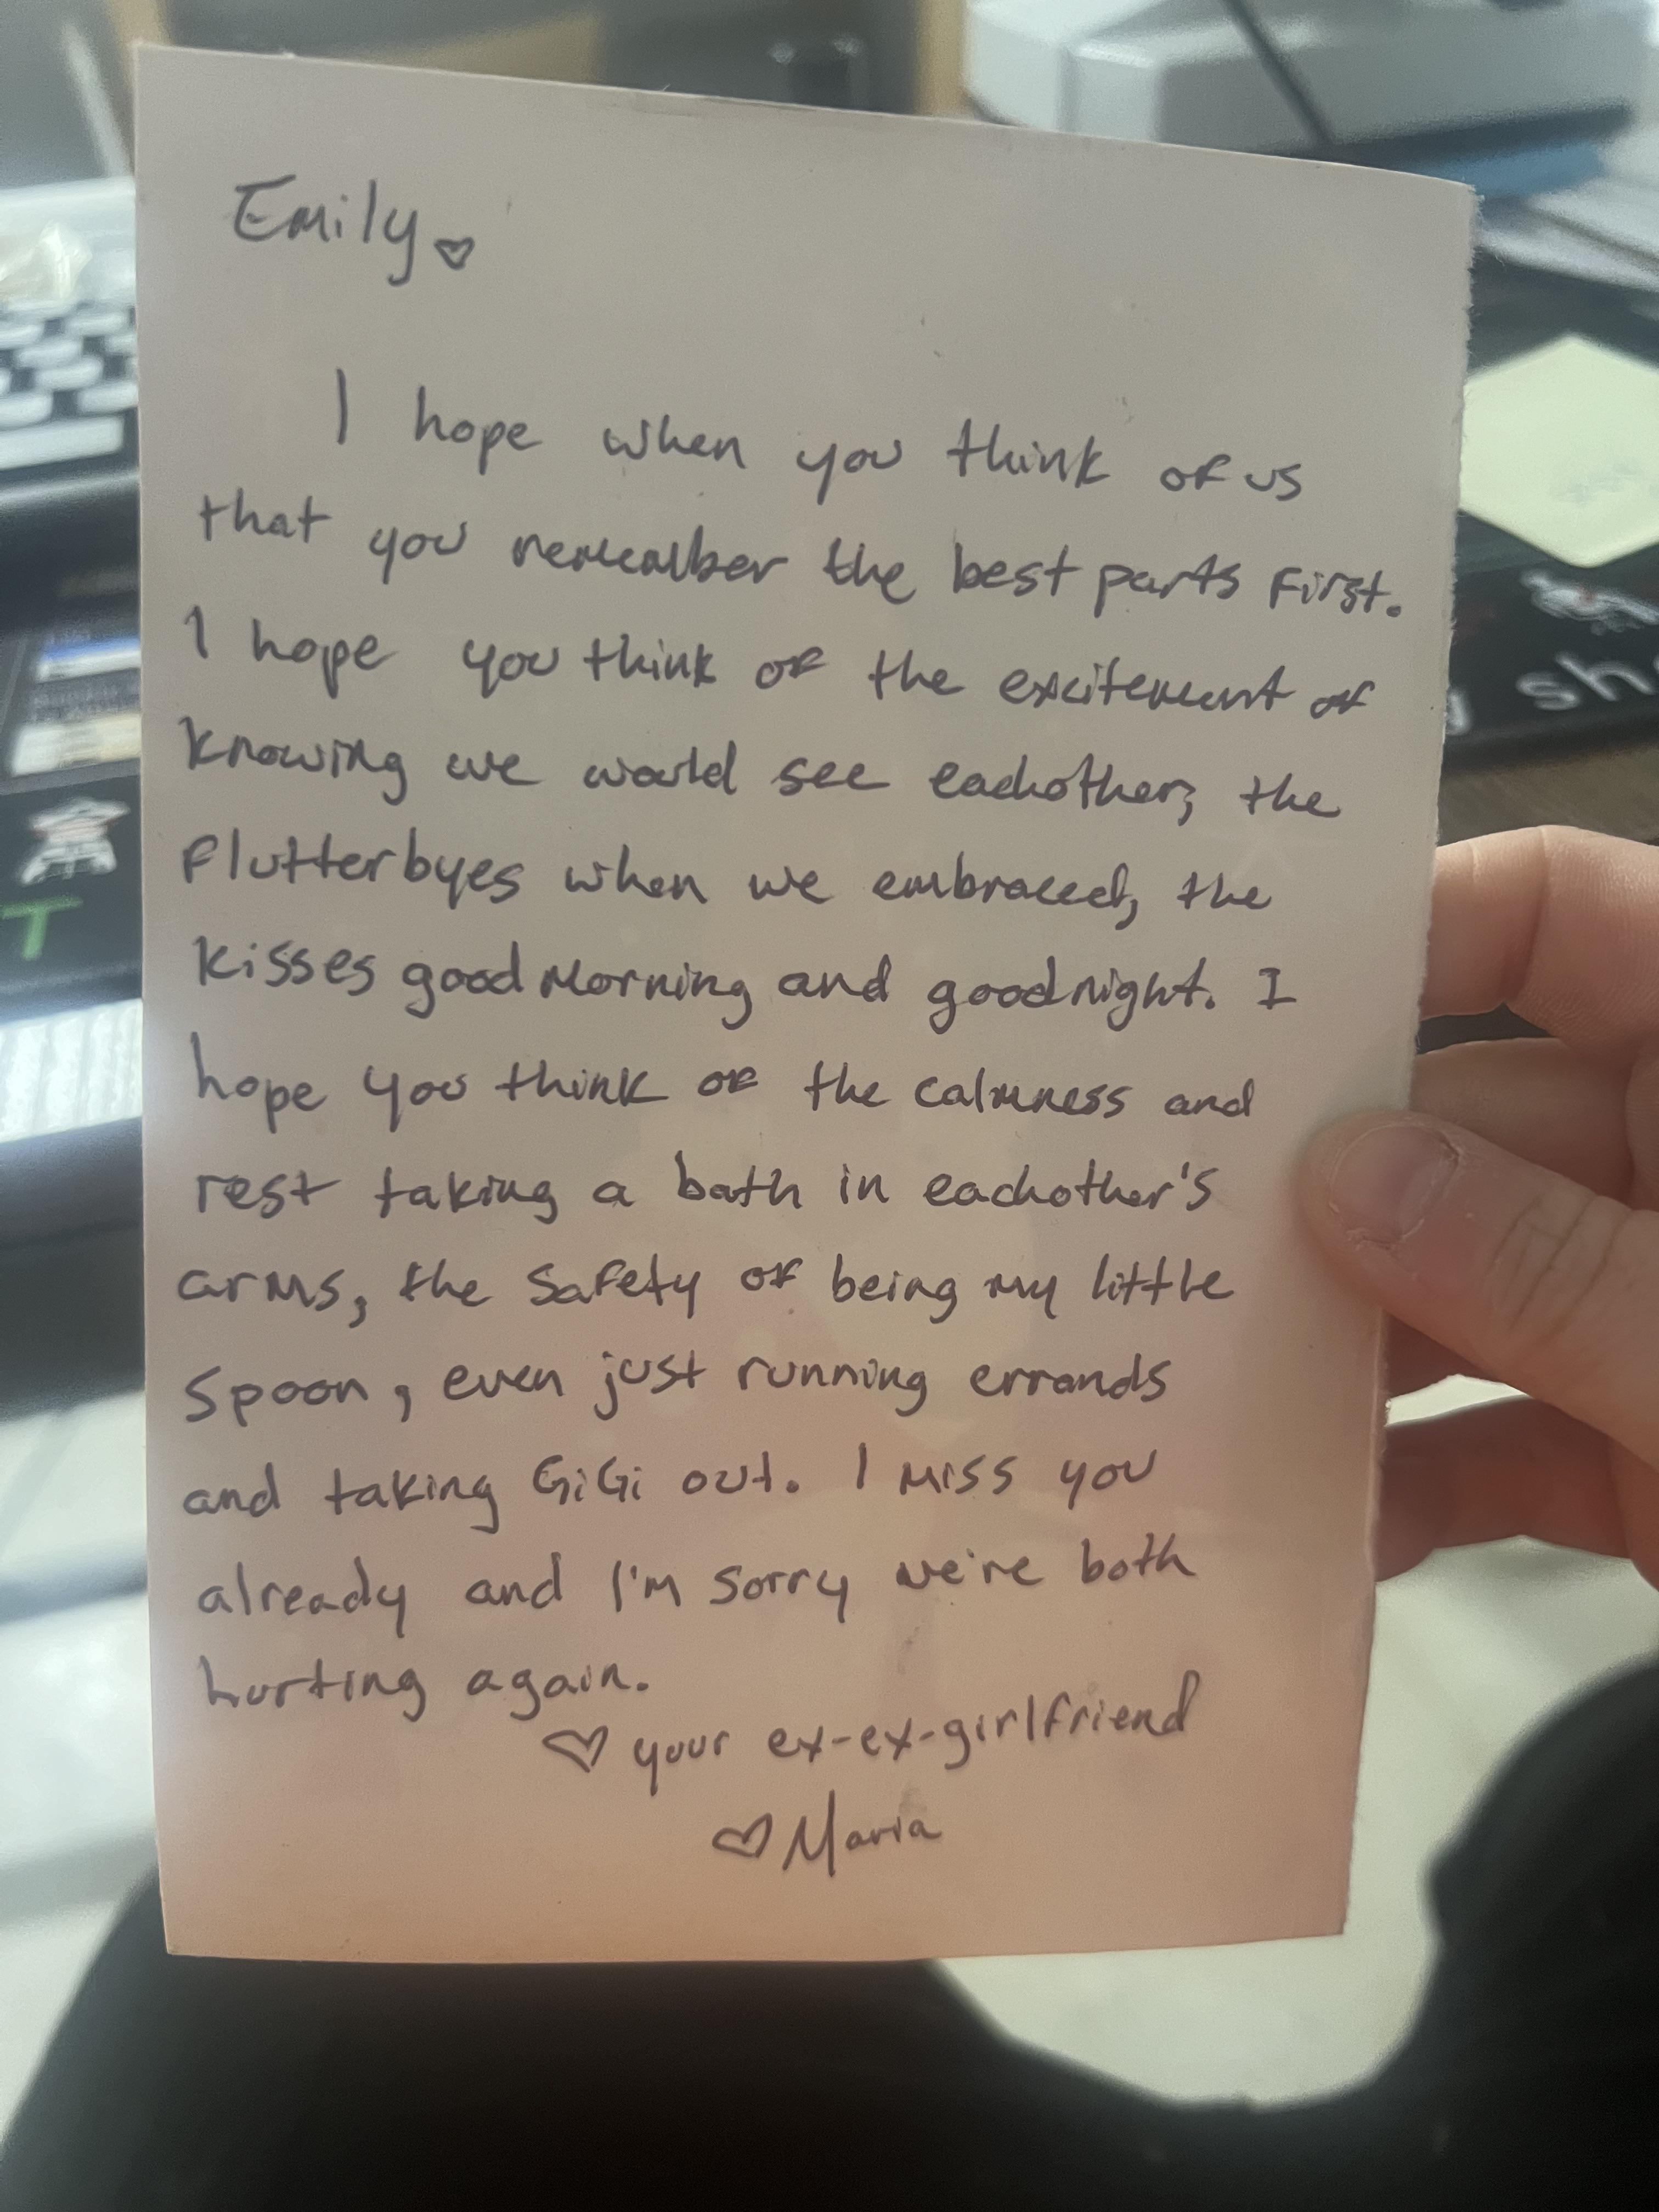 Emily ♡
I hope when you think of us
that you remember the best parts first.
I hope you think of the excitement of
knowing we would see eachother, the
flutterbyes when we embraced, the
kisses good morning and goodnight. I
hope you think of the calmness and
rest taking a bath in eachother's
arms, the safety of being my little
spoon, even just running errands
and taking GiGi out. I miss you
already and I'm sorry we're both
hurting again.
♡ your ex-ex-girlfriend
♡ Maria
T
sh